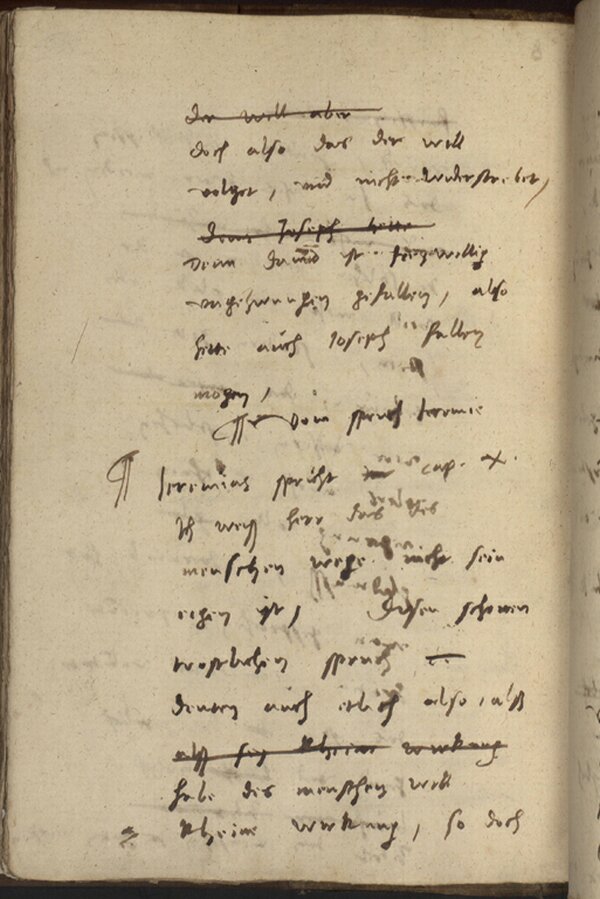 der will aber
doch also das der will
volget, und nicht widerstrebet,
denn Joseph hette
denn David ist freywillig
ungezwungen gefallen, also
hette auch Joseph fallen
mogen,
Vom spruch Jeremie
Jeremias spricht cap. x.
Ich weyß herr das des
menschen wege nicht sein
eigen ist, Disen schonen
trostlichen spruch
deuten auch etlich also, alß
alß sey kheine wirkung
habe des menschen will
kheine wirkung, so doch